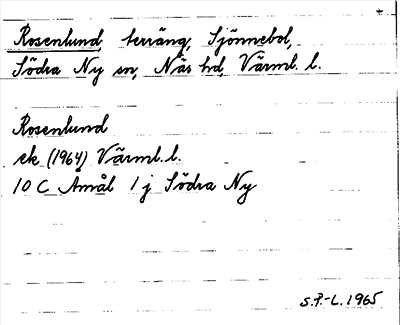 Rosenlund, terräng, Sjönnebol,
Södra Ny sn, Näs hd, Värml. l.
Rosenlund
ek (1964) Värml. l.
10 C Åmål 1 j Södra Ny
S.P.-L. 1965